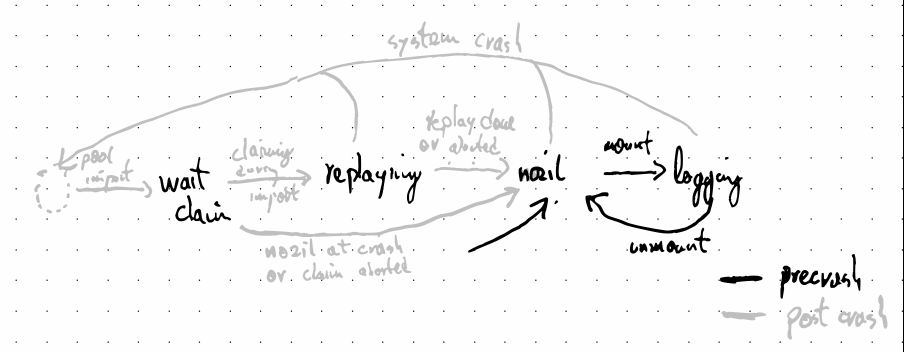 system crash
pool
import
wait
claim
claiming
during
import
replaying
replay done
or aborted
nozil
mount
logging
unmount
nozil at crash
or claim aborted
precrash
post crash